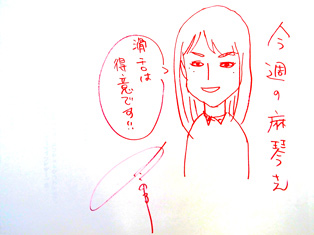 今週の麻琴さん
滑舌は
得意です!!